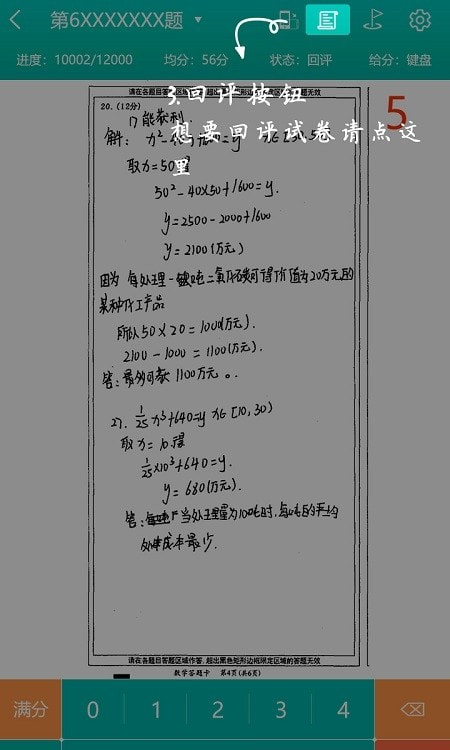 第6XXXXXXX题
进度：10002/12000 均分：56分 状态：回评 给分：键盘
请在各题目答题区 超出无效
5
3.回评按钮
想要回评试卷请点这
里
20.（12分）
①能获利.
解：
取x=50得
50²-40×50+1600=y.
y=2500-2000+1600
y=2100(万元)
因为 每处理一 吨二氧化碳可得价值为20万元的
某种化工产品
所以50×20=1000(万元).
2100-1000=1100(万元).
答：最多可获1100万元。.
1/25 x³+640=y x∈[10,30)
取x=10.得
1/25×10³+640=y.
y=680(万元).
答： 当处理量为 吨时，每吨的平均
处理成本最少.
请在各题目答题区域作答，超出黑色矩形边框限定区域的答题无效
数学答题卡 第4页(共6页)
满分 0 1 2 3 4